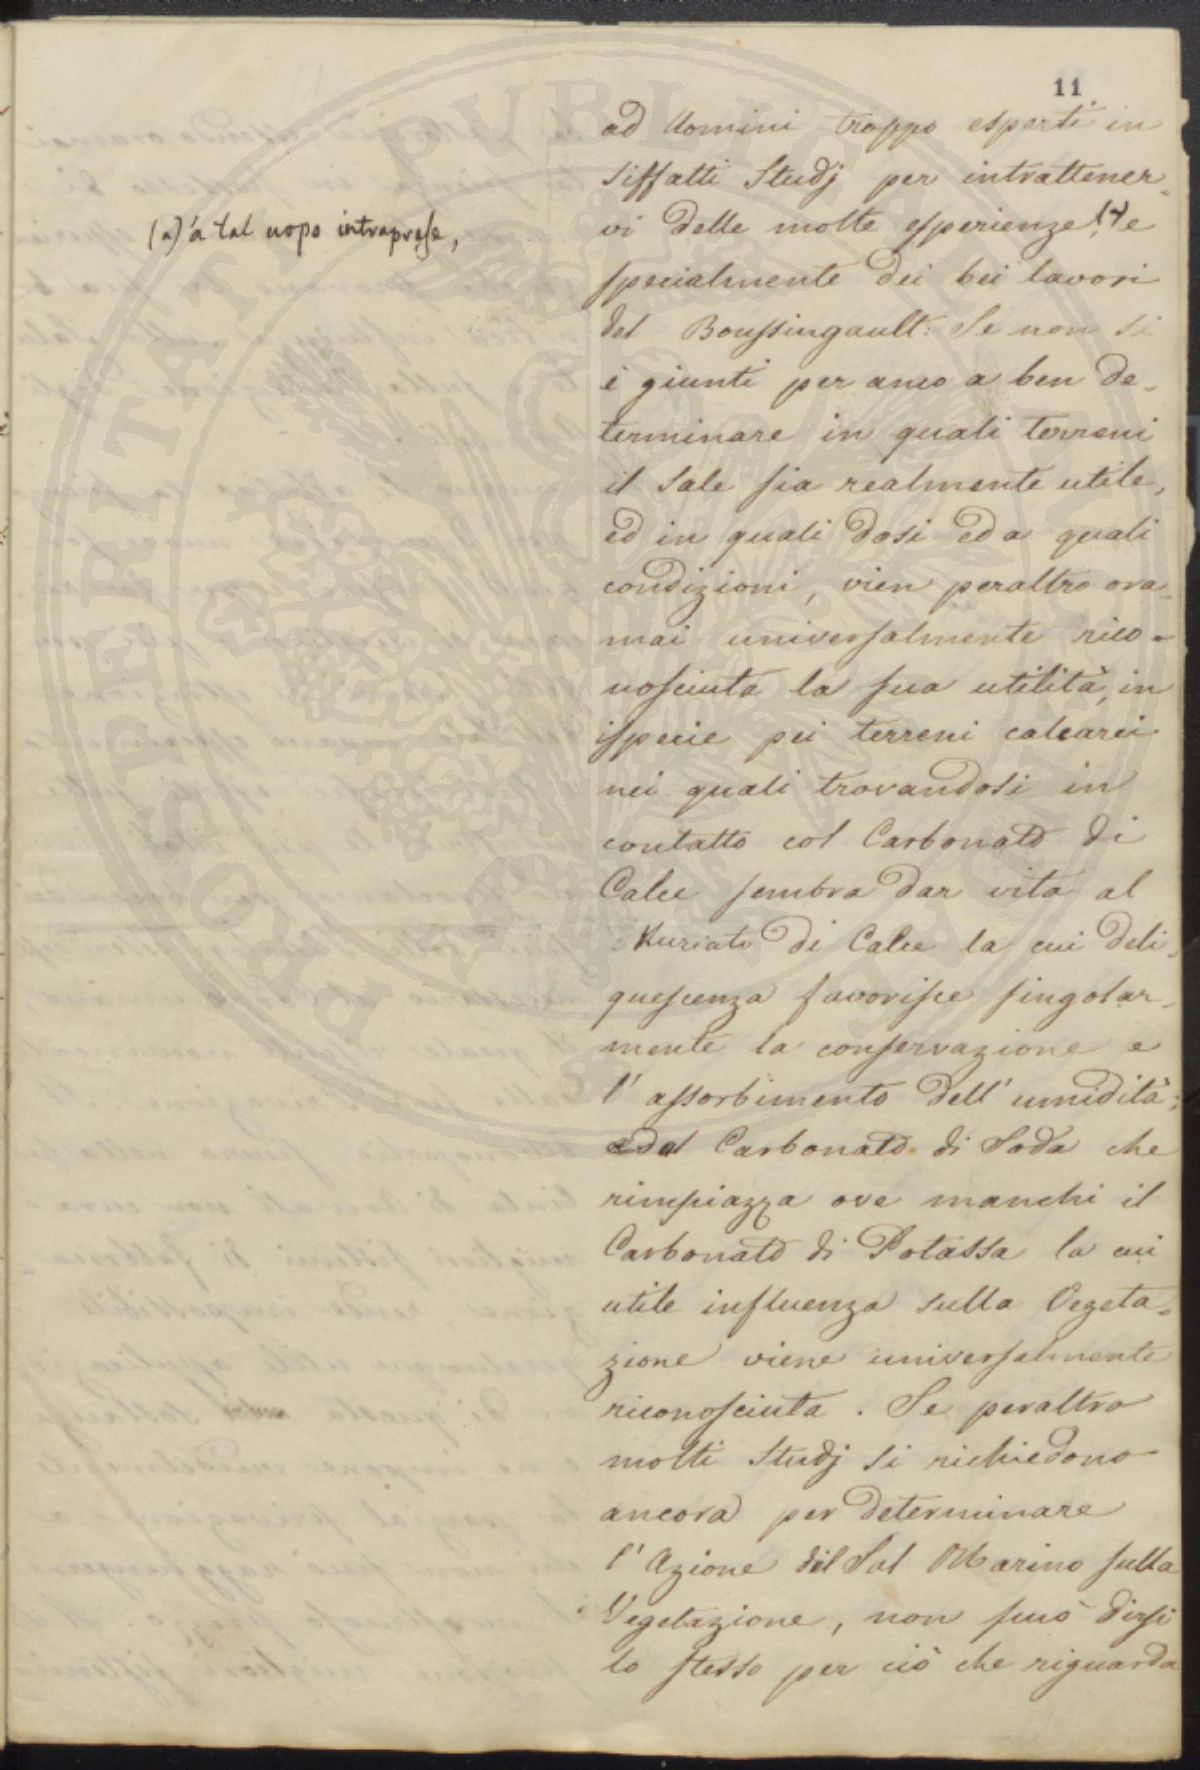 11
ad Uomini troppo esperti in
siffatti Studj per intrattener-
vi delle molte esperienze (a) e
specialmente dei bei lavori
del Boussingault: Se non si
è giunti per anco a ben de-
terminare in quali terreni
il Sale sia realmente utile,
ed in quali dosi ed a quali
condizioni, vien peraltro ora-
mai universalmente rico-
nosciuta la sua utilità, in
ispecie pei terreni calcarei
nei quali trovandosi in
contatto col Carbonato di
Calce sembra dar vita al
Muriato di Calce la cui deli-
quescenza favorisce singolar-
mente la conservazione e
l' assorbimento dell' umidità;
ed al Carbonato di Soda che
rimpiazza ove manchi il
Carbonato di Potassa la cui
utile influenza sulla Vegeta-
zione viene universalmente
riconosciuta. Se peraltro
molti Studj si richiedono
ancora per determinare
l' Azione del Sal Marino sulla
Vegetazione, non può dirsi
lo stesso per ciò che riguarda
(a) à tal uopo intraprese,
PROSPERITATI PUBLICAE